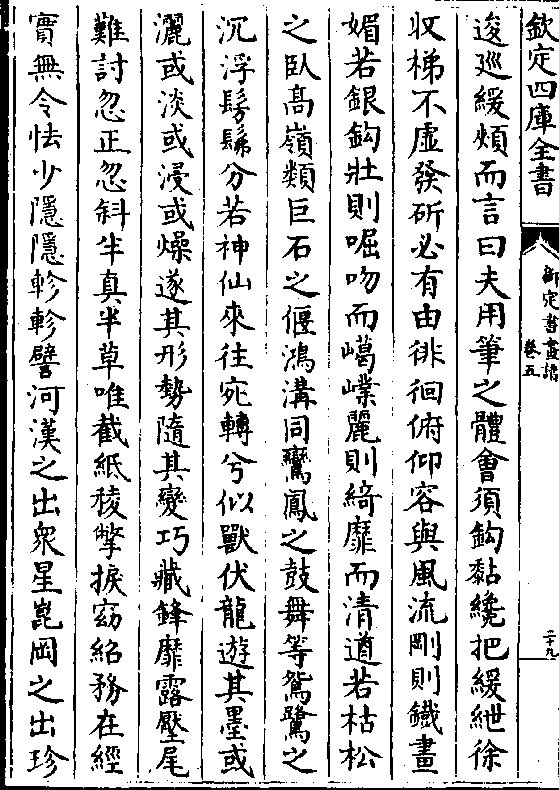 欽定四庫全書
御定書畫譜
卷五
二十九
逡巡緩頰而言曰夫用筆之體會須鈎黏纔把緩紲徐
收梯不虛發斫必有由徘徊俯仰容與風流剛則鐵畫
媚若銀鈎壯則啒吻而嶱嵲麗則綺靡而清遒若枯松
之臥髙嶺類巨石之偃鴻溝同鸞鳳之鼓舞等鴛鷺之
沉浮髣髴兮若神仙來往宛轉兮似獸伏龍遊其墨或
灑或淡或浸或燥遂其形勢隨其變巧藏鋒靡露壓尾
難討忽正忽斜半真半草唯截紙稜撆捩窈紹務在經
實無令怯少隱隱軫軫譬河漢之出衆星崑岡之出珍